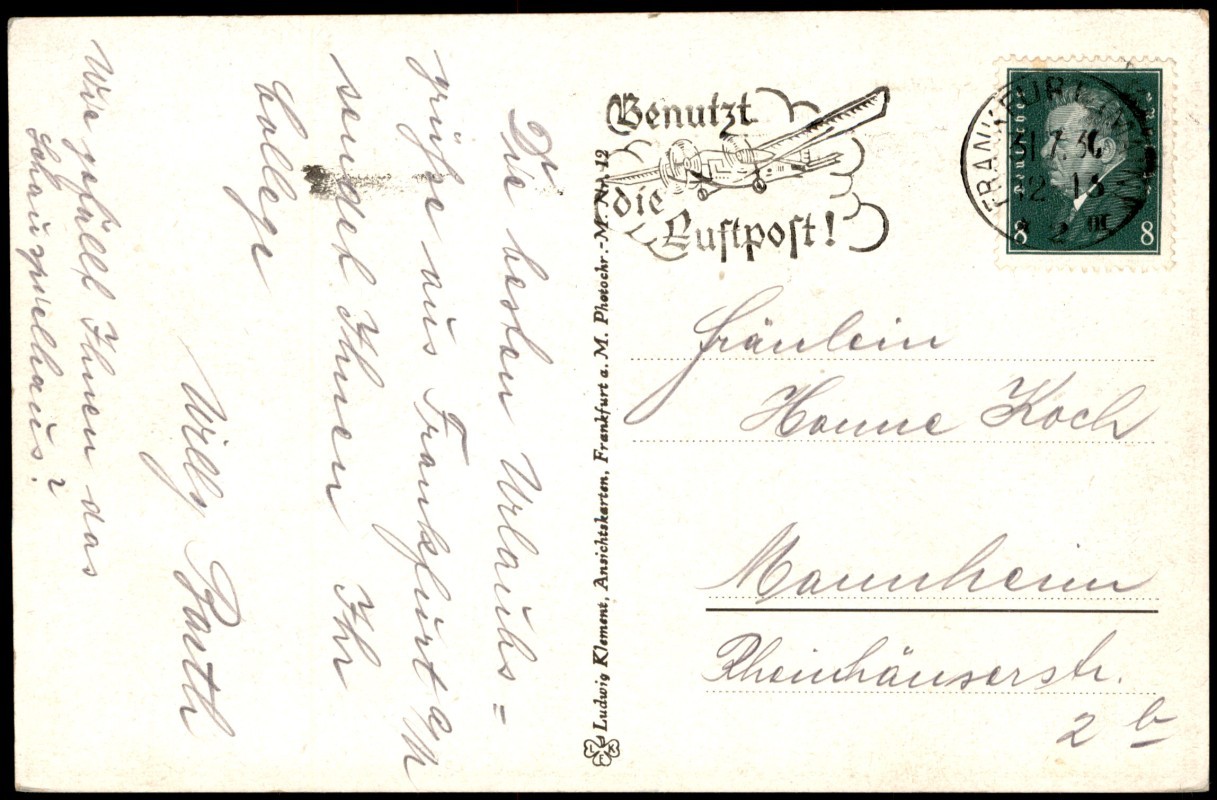 Die besten Urlaubs=
grüße aus Frankfurt a/M
sendet Ihnen Ihr
Kollege
Willy Barth
Wie gefällt Ihnen das
Schauspielhaus?
Ludwig Klement, Ansichtskarten, Frankfurt a. M. Photochr.-M. Nr. 12
Benutzt
die
Luftpost!
FRANKFURT
31.7.36
8 8
Fräulein
Hanne Koch
Mannheim
Rheinhäuserstr.
2 b